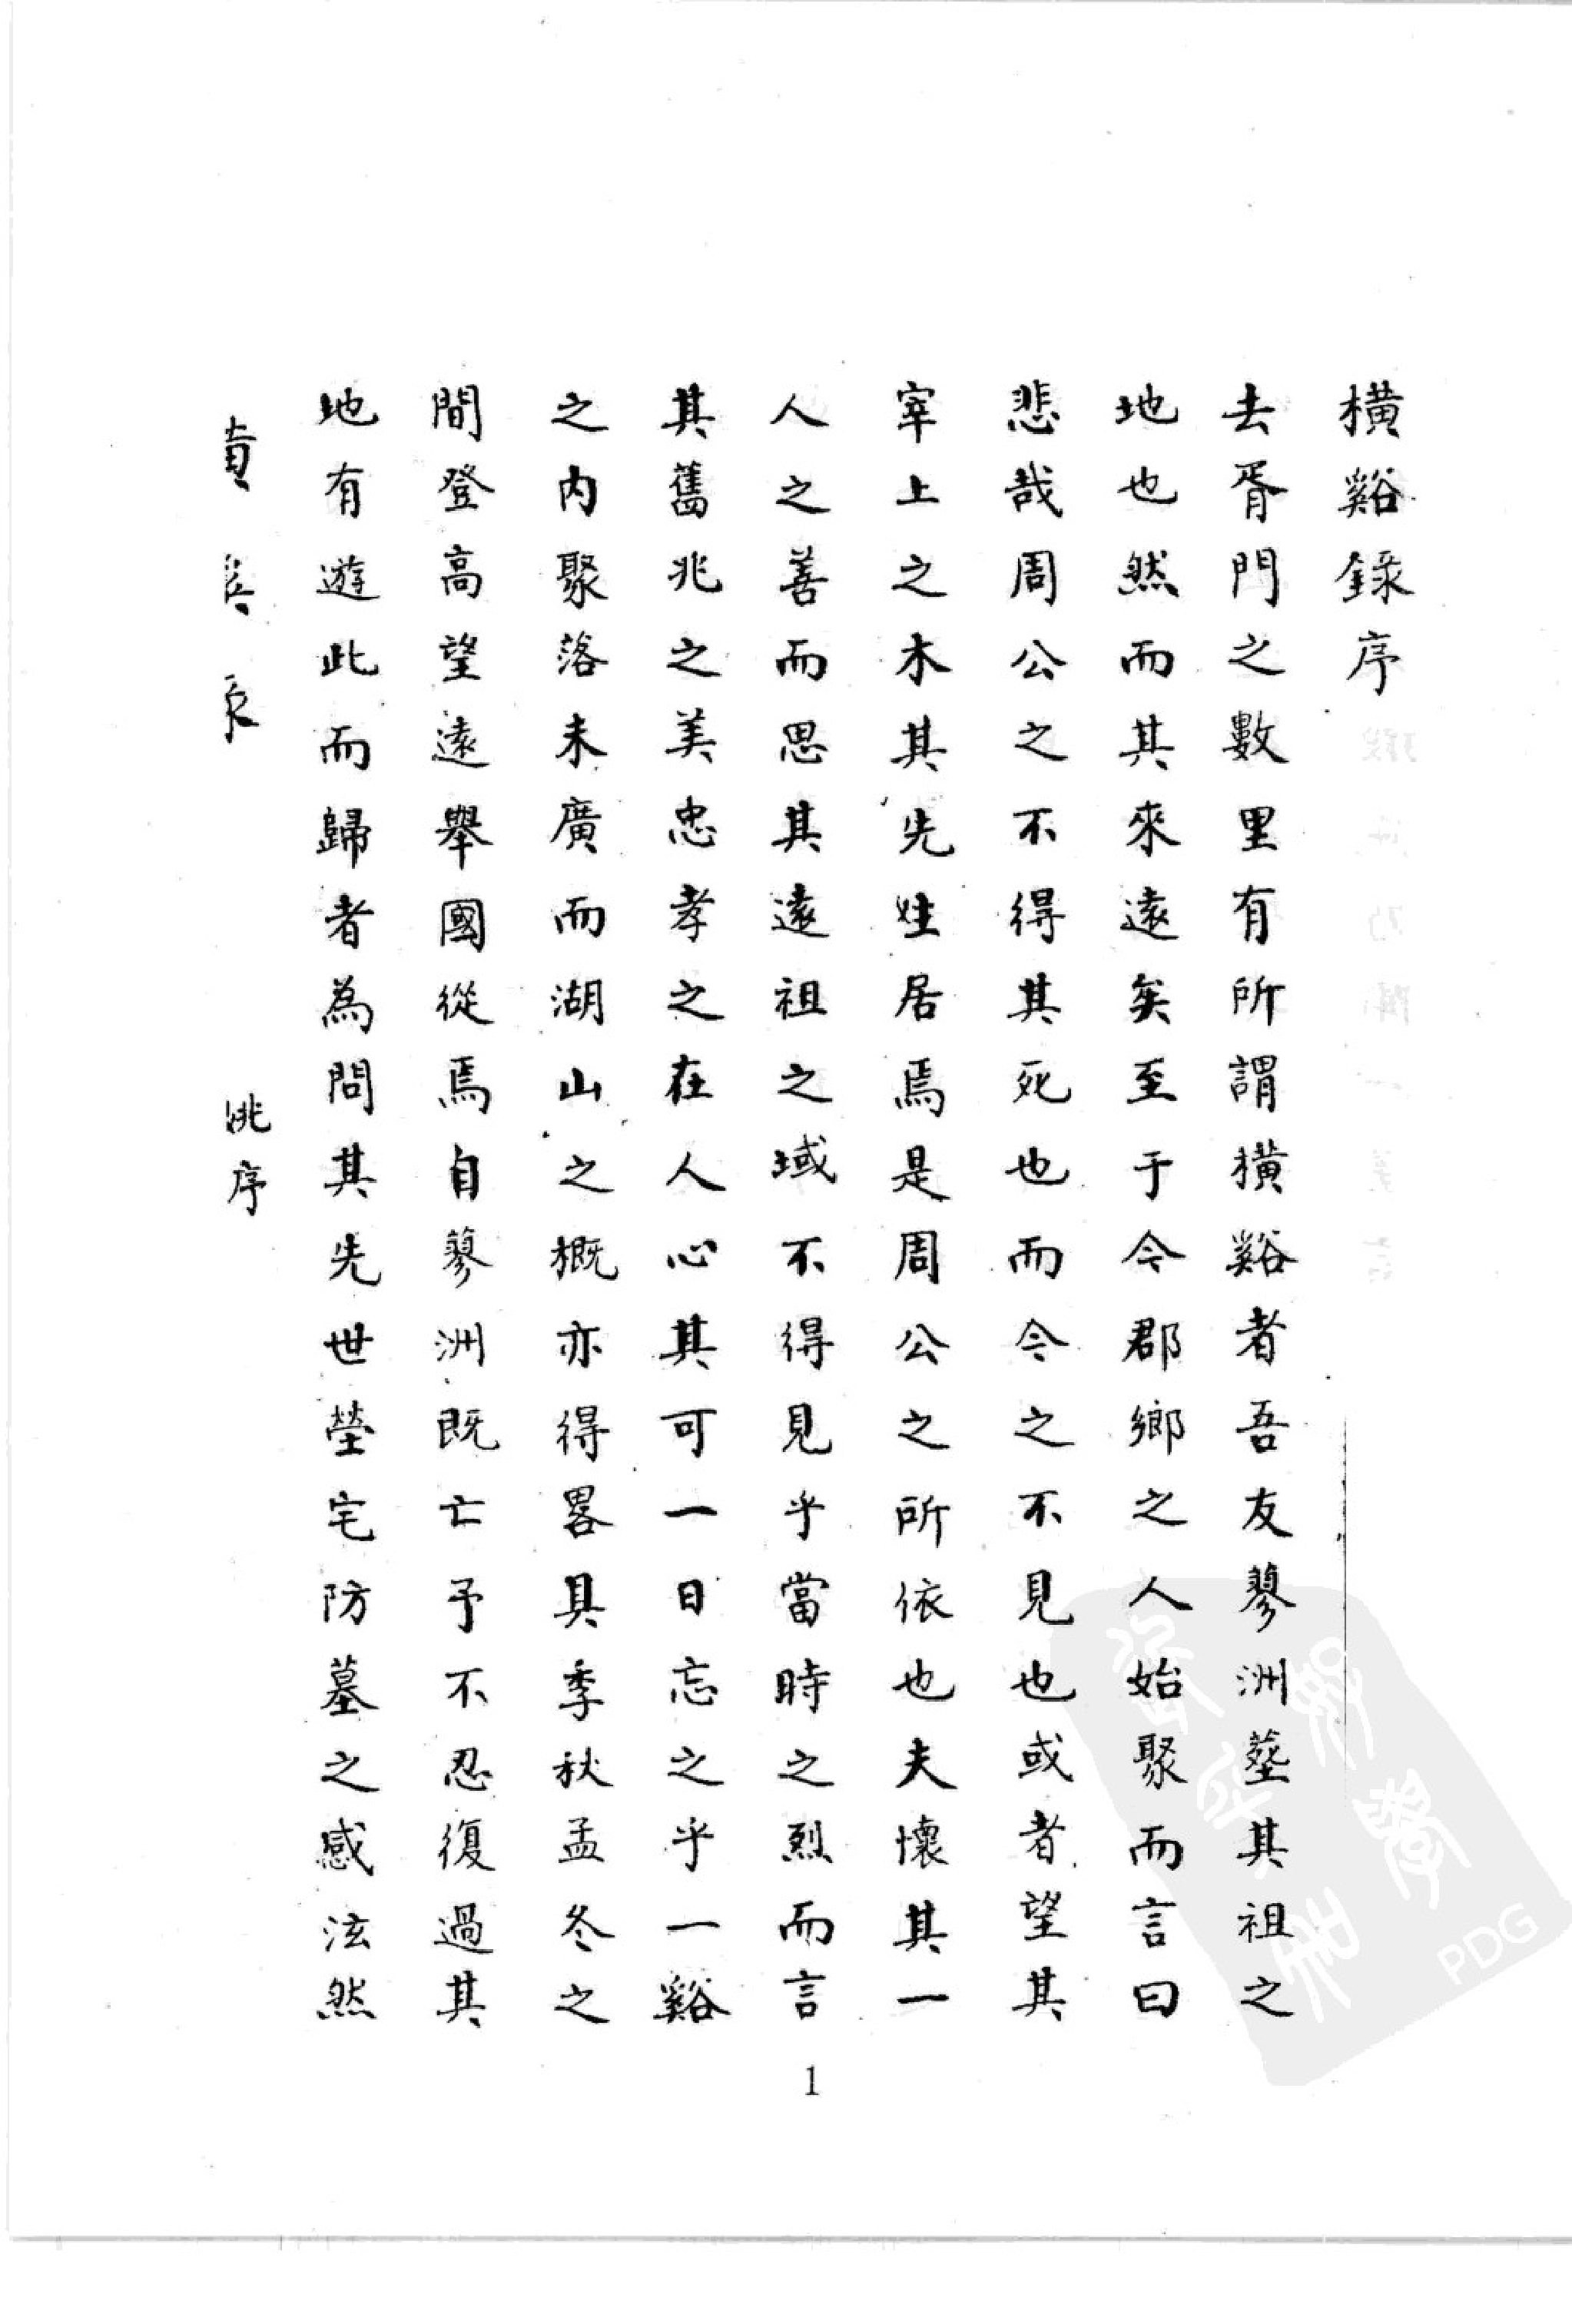 橫谿錄序
去胥門之數里有所謂橫谿者吾友蓼洲塟其祖之
地也然而其來遠矣至于今郡鄉之人始聚而言曰
悲哉周公之不得其死也而今之不見也或者望其
宰上之木其先壟居焉是周公之所依也夫懷其一
人之善而思其遠祖之域不得見乎當時之烈而言
其舊兆之美忠孝之在人心其可一日忘之乎一谿
之內聚落未廣而湖山之概亦得畧具季秋孟冬之
間登高望遠舉國從焉自蓼洲既亡予不忍復過其
地有遊此而歸者為問其先世塋宅防墓之感泫然
姚序
1
PDG